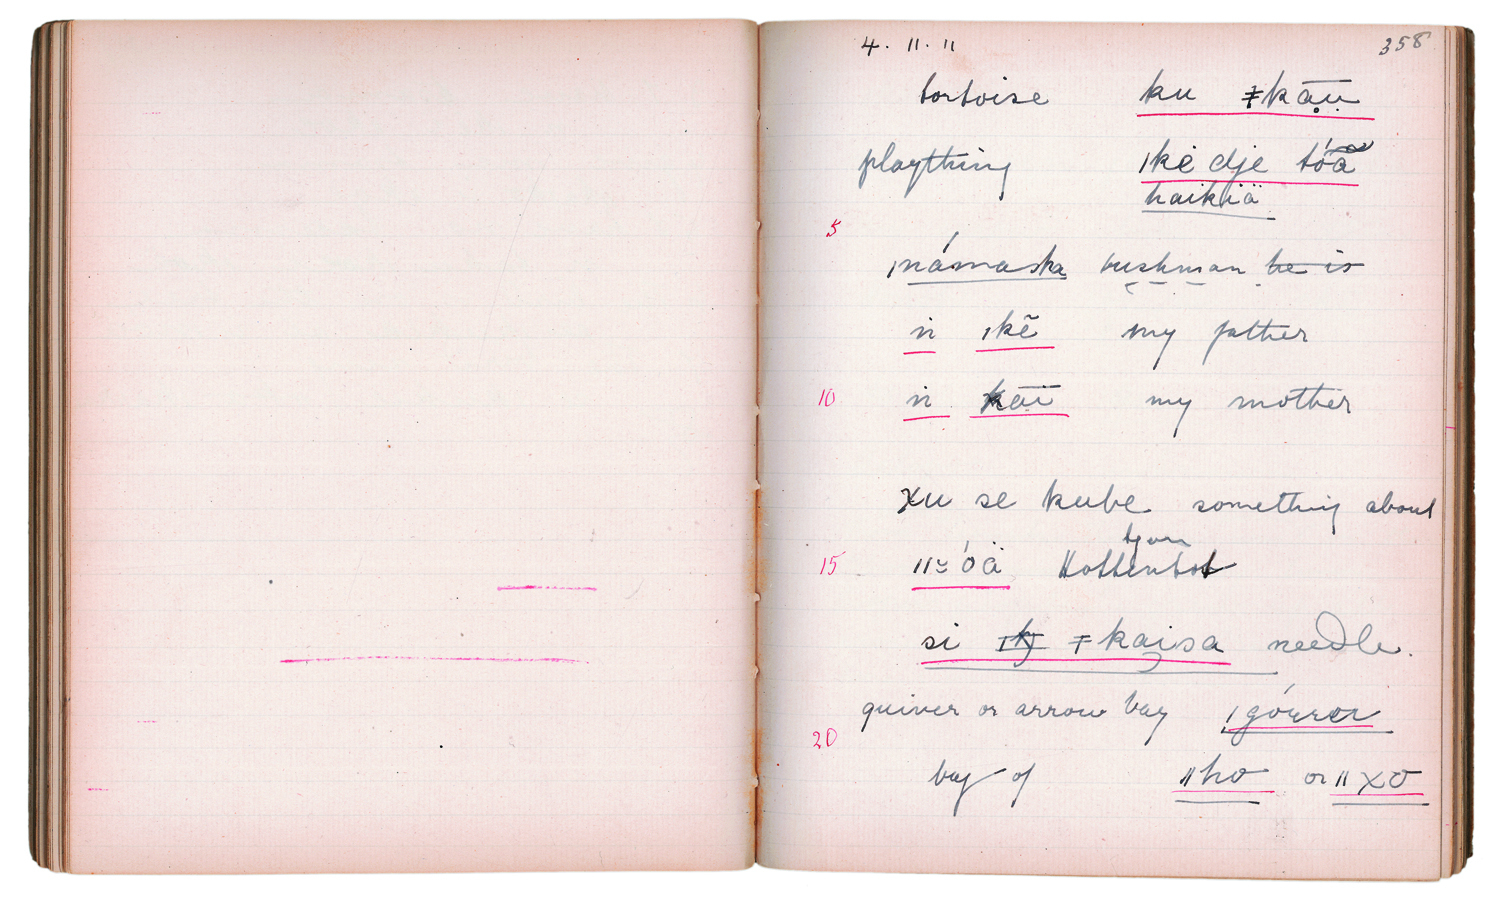 4. 11. 11 358
tortoise ku ǂkā̤ṳ
plaything ǀkė dje tóã
haikiä
5
ǀnámaska bushman he is
ṅ ǀkẽ my father
10 ṅ kāī my mother
χu se kube something about
tjon
15 ǁ≈óä Hottentot
si ǂkaisa needle.
quiver or arrow bag ǀgóurrer
20
bag of ǁho or ǁχo